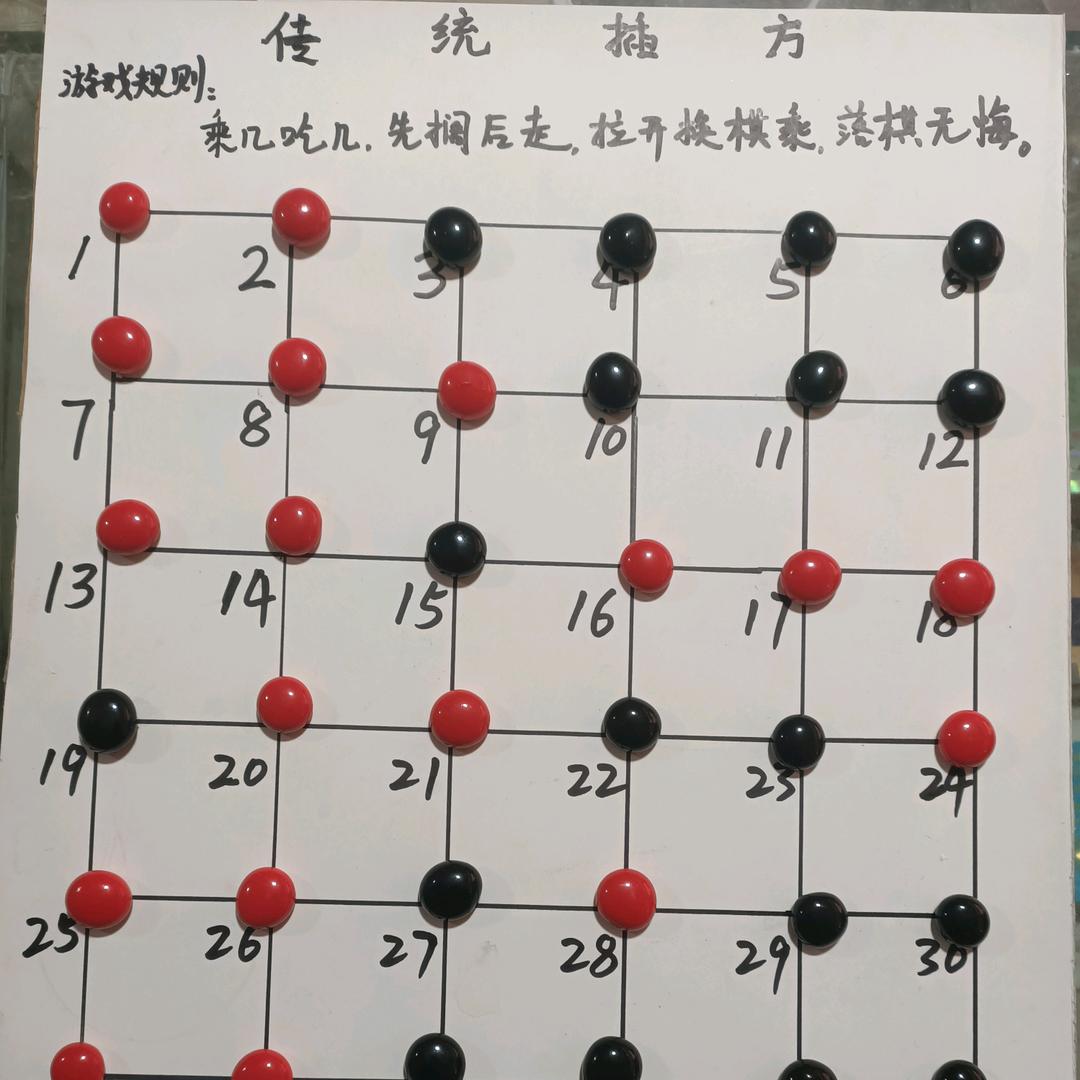 传统插方
游戏规则:
乘几吃几.先搁后走,拉开换棋乘,落棋无悔。
1 2 3 4 5 6
7 8 9 10 11 12
13 14 15 16 17 18
19 20 21 22 23 24
25 26 27 28 29 30